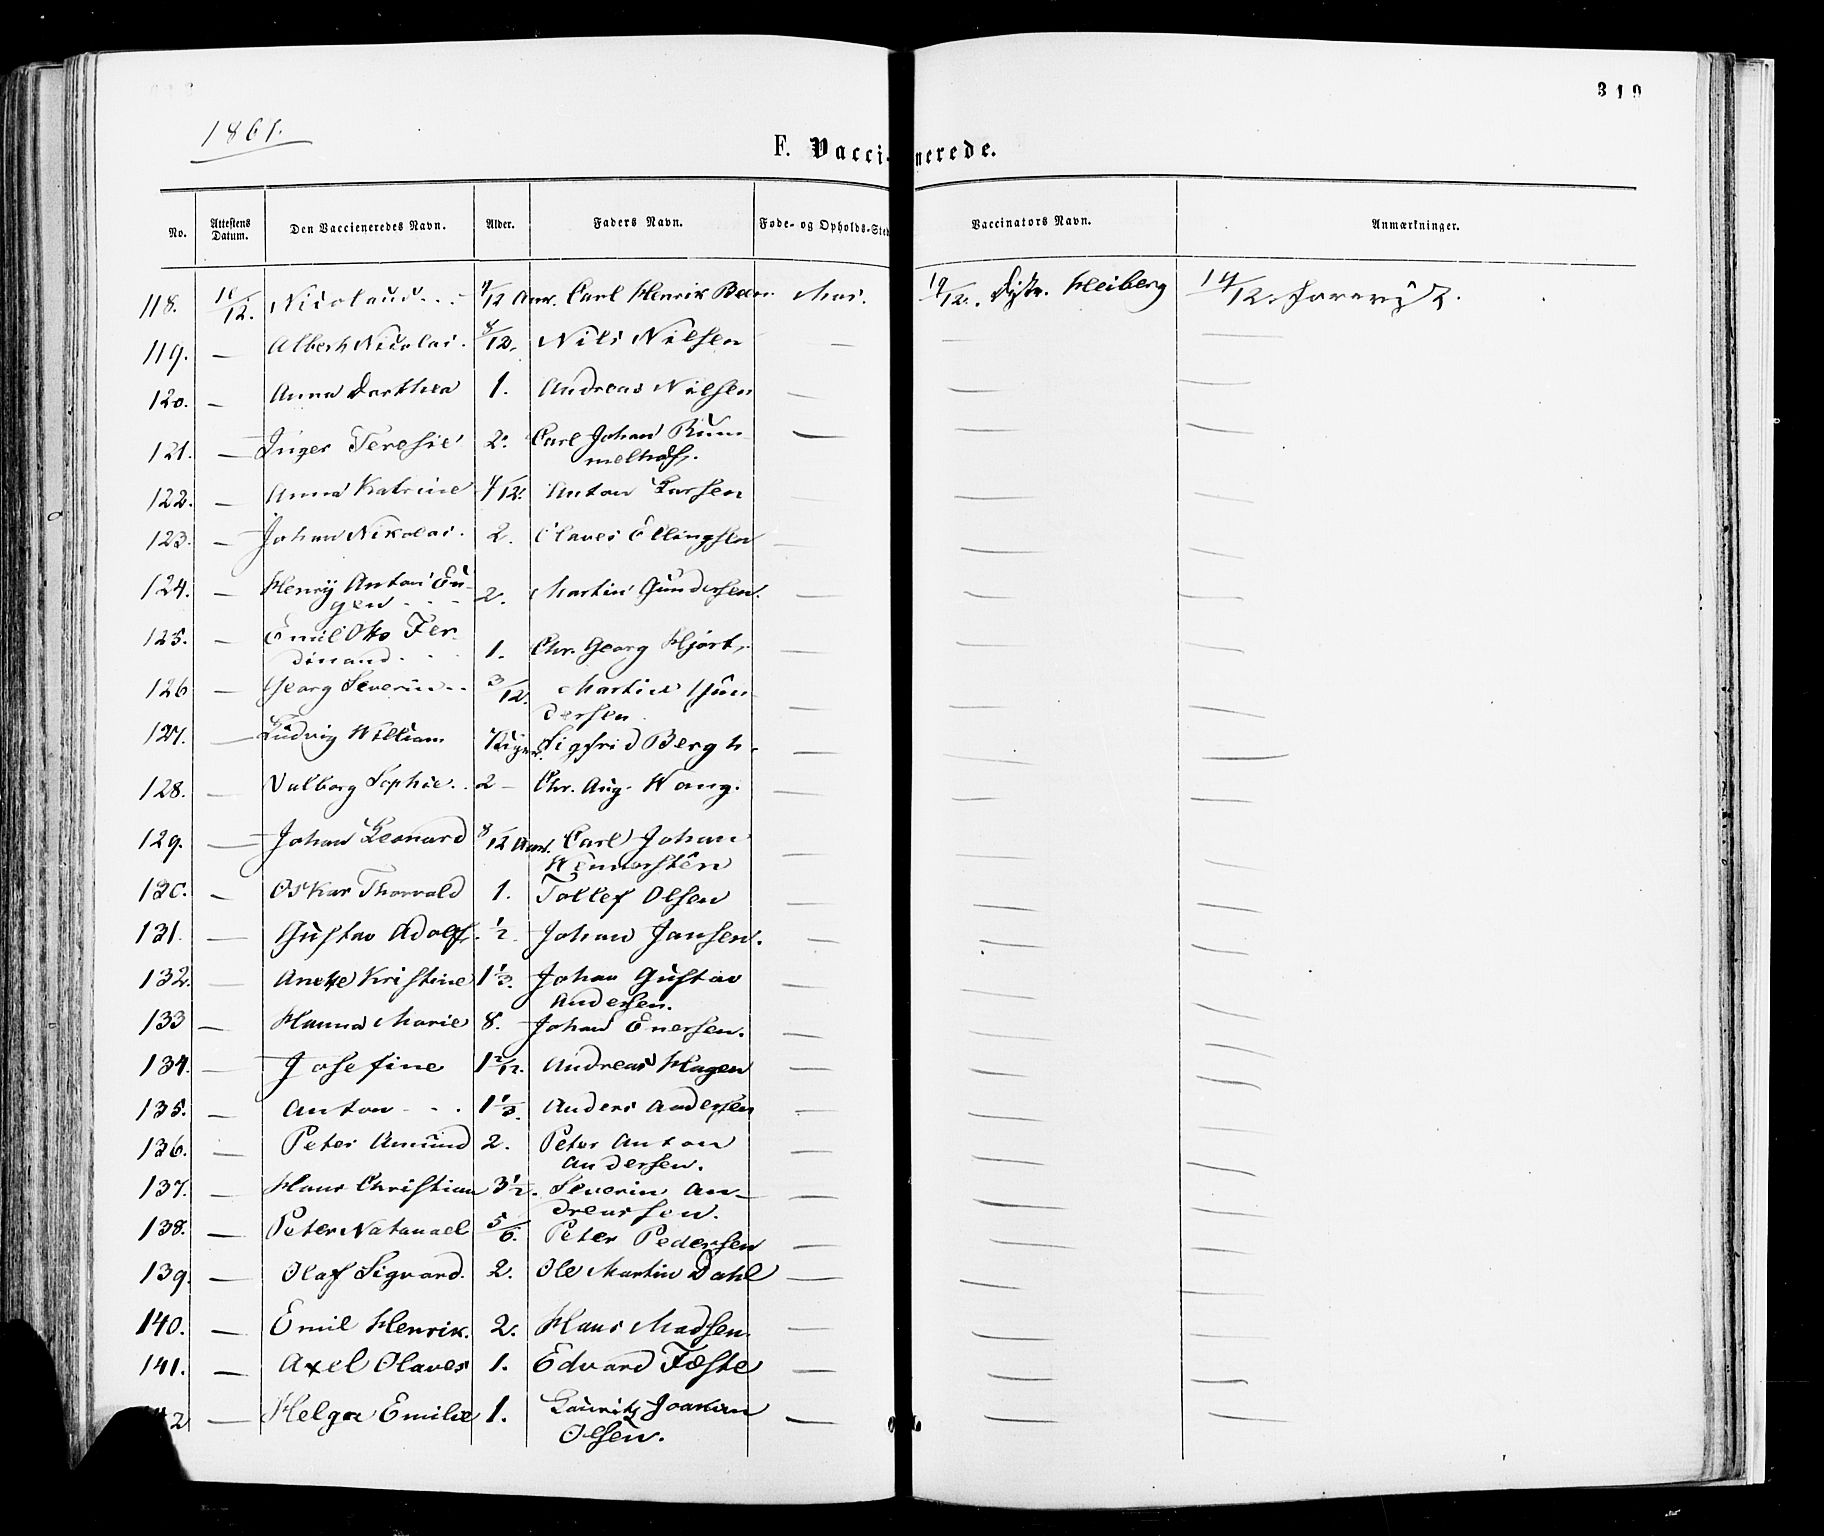 319
1861.
F. Vaccinerede.
No. Attestens Datum. Den Vaccieneredes Navn. Alder. Faders Navn. Føde- og Opholds-Sted Vaccinators Navn. Anmærkninger.
118. /12. Nicolaus /12 Aar. Carl Henrik Beer Mos. 19/12. Distr. Heiberg 14/12
119. — Albert Nicolai. 8/12. Nils Nilsen — — —
120. — Anna Dorthea 1. Andreas Nilsen — — —
121. — Inger Teresie 2. Carl Johan Rum
melhof. — — —
122. — Anna Katrine /12. Anton Larsen — — —
123. — Johan Nikolai. 2. Olaves Ellingsen — — —
124. — Henry Anton Eu-
gen 2. Martin Gundersen. — — —
125. — Emil Otto Fer-
dinand. 1. Chr. Georg Hjort. — — —
126 — Georg Severin 3/12. Martin Gun
dersen — — —
127. — Ludvig William Sigfrid Bergh. — — —
128. — Valborg Sophie. 2 — Chr. Aug. Wang. — — —
129. — Johan Leonard 8/12 Aar. Carl Johan
— — —
130. — Oskar Thorvald 1. Tollef Olsen — — —
131. — Gustav Adolf. 1/2. Johan Jansen. — — —
132. — Anette Kristine 1 1/3. Johan Gustav
Andersen. — — —
133 — Hanna Marie 8. Johan Enersen. — — —
134. — Josefine 1 2/12. Andreas Hagen — — —
135. — Anton 1 1/3. Anders Andersen — — —
136. — Peter Amund 2. Peter Anton
Andersen. — — —
137. — Hans Christian 3 1/2. Severin An-
dreassen. — — —
138. — Peter Natanael 5/6. Peter Pedersen — — —
139. — Olaf Sigvard. 2. Ole Martin Dahl — — —
140. — Emil Henrik. 2. Hans Madsen. — — —
141. — Axel Olaves 1. Edvard Fæste — — —
2 — Helga Emilie 1. Lauritz Joakim
Olsen. — — —